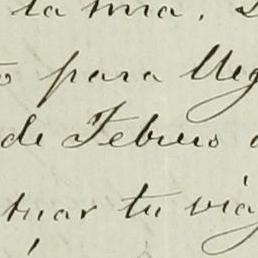 la tma.
para lleg
de Febrero
tuar tu viaj